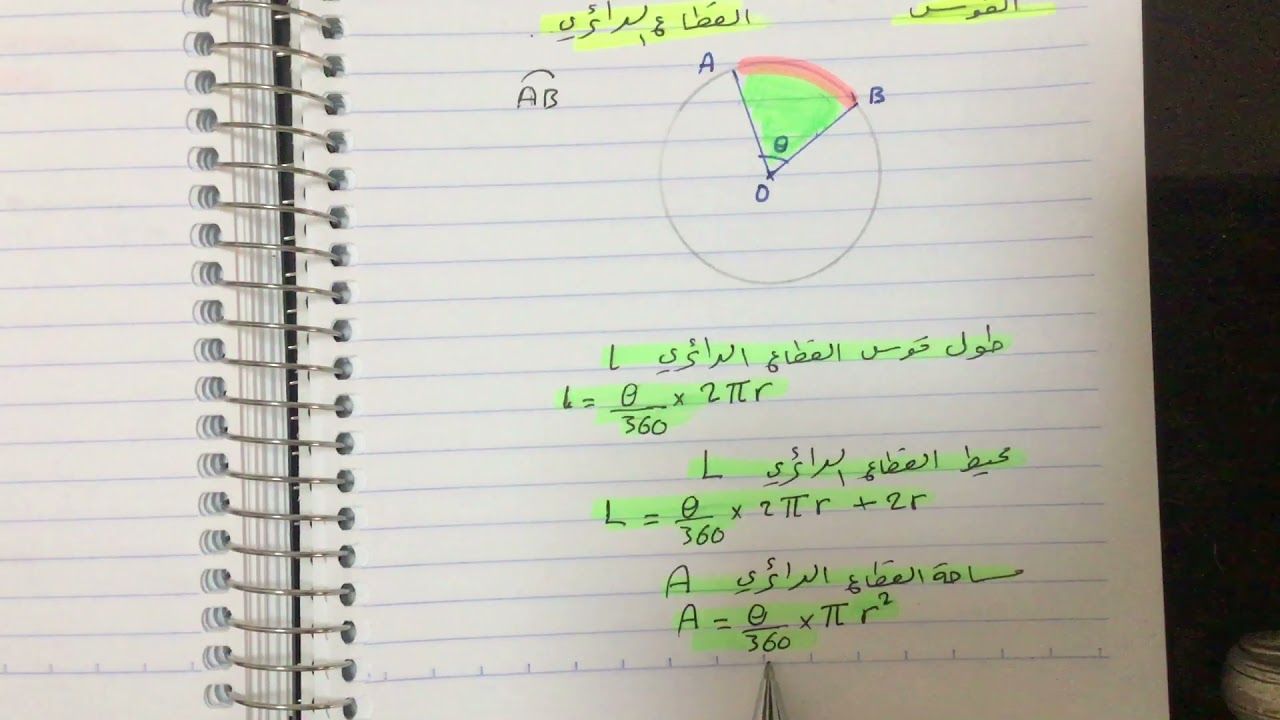 القوس
القطاع الدائري
A
AB
B
θ
O
طول قوس القطاع الدائري l
l = θ/360 × 2πr
محيط القطاع الدائري L
L = θ/360 × 2πr + 2r
مساحة القطاع الدائري A
A = θ/360 × πr²